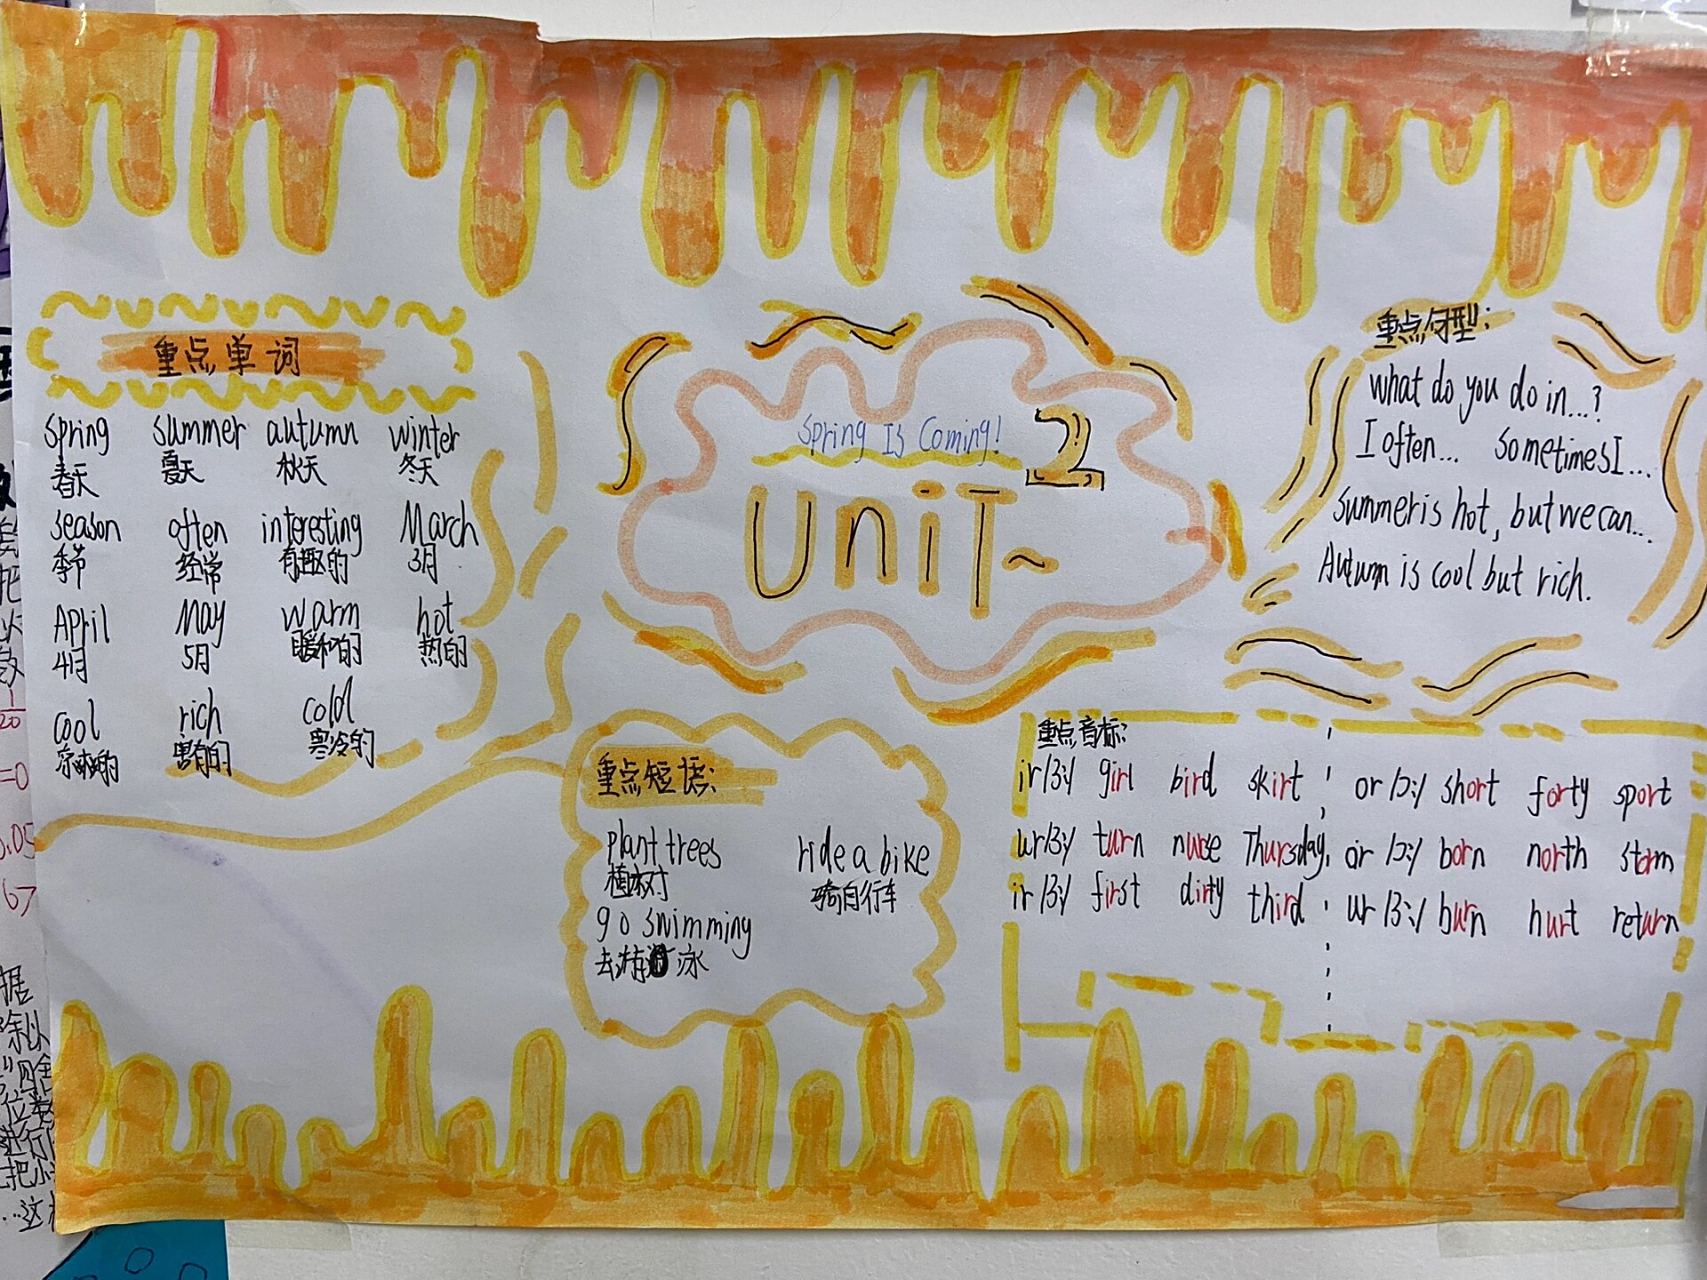 重点单词
spring summer autumn winter
春天 夏天 秋天 冬天
season often interesting March
季节 经常 有趣的 3月
April May warm hot
4月 5月 暖和的 热的
cool rich cold
凉爽的 富有的 寒冷的
Spring Is Coming!
UniT 2~
重点句型:
What do you do in...?
I often... Sometimes I...
Summer is hot, but we can...
Autumn is cool but rich.
重点短语:
plant trees ride a bike
植树 骑自行车
go swimming
去游泳
重点音标:
ir /ɜ:/ girl bird skirt or /ɔ:/ short forty sport
ur /ɜ:/ turn nurse Thursday or /ɔ:/ born north storm
ir /ɜ:/ first dirty third ur /ɜ:/ burn hurt return
据